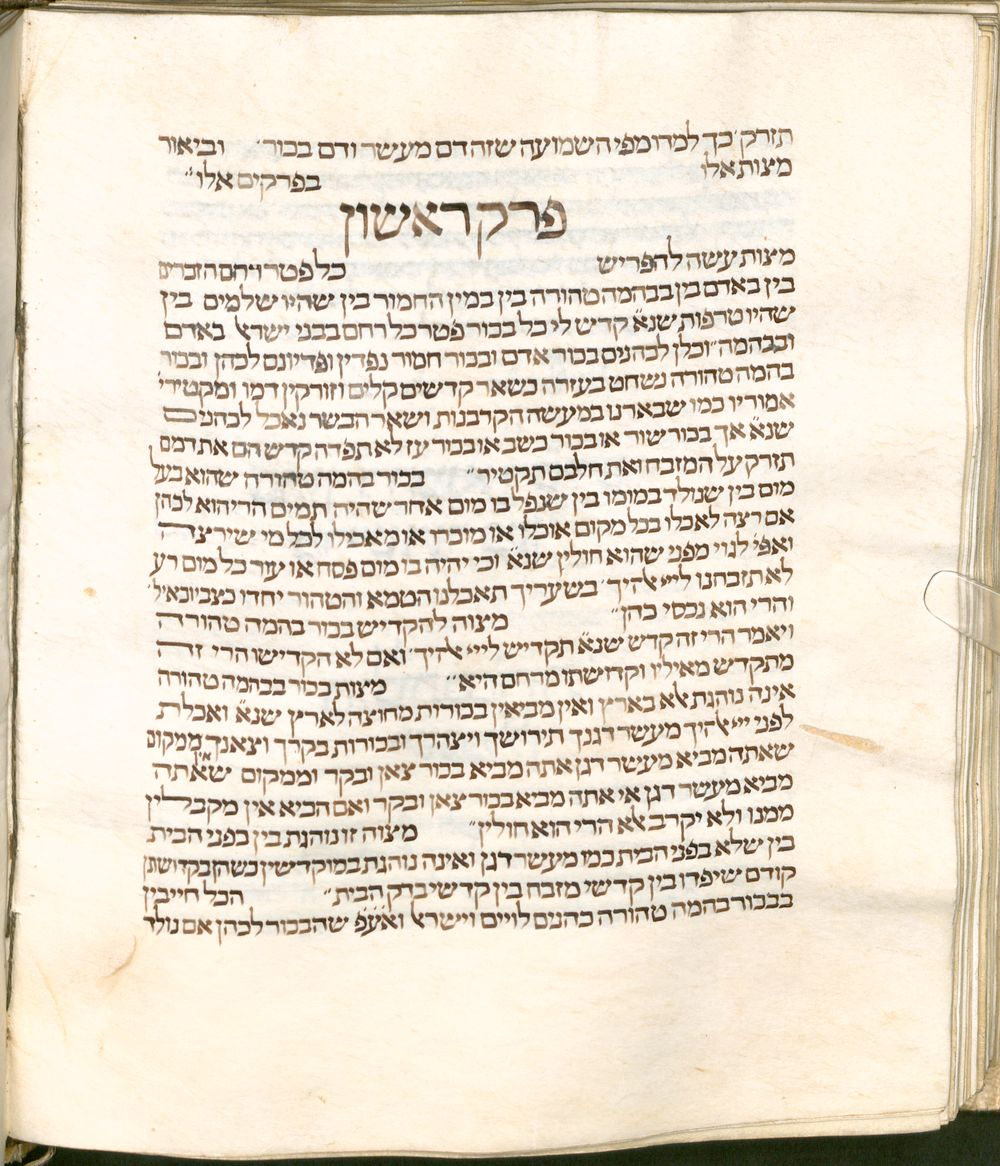 תזרק כך למדו מפי השמועה שזה דם מעשר ודם בכור׳ וביאור
מצות אלו בפרקים אלו״
פרק ראשון
מצות עשה להפריש כל פטר רחם הזכרים
בין באדם בין בבהמה טהורה בין במין החמור בין שהיו שלמים בין
שהיו טרפות שנא׳ קדש לי כל בכור פטר כל רחם בבני ישראל באדם
ובבהמה׳ וכלן לכהנים בכור אדם ובכור חמור נפדין ופדיונם לכהן ובכור
בהמה טהורה נשחט בעזרה כשאר קדשים קלים וזורקין דמו ומקטירי׳
אמוריו כמו שבארנו במעשה הקרבנות ושאר הבשר נאכל לכהנים
שנא׳ אך בכור שור או בכור כשב או בכור עז לא תפדה קדש הם את דמם
תזרק על המזבח ואת חלבם תקטיר״ בכור בהמה טהורה שהוא בעל
מום בין שנולד במומו בין שנפל בו מום אחר שהיה תמים הרי הוא לכהן
אם רצה לאכלו בכל מקום אוכלו או מוכרו או מאכילו לכל מי שירצה
ואפי׳ לגוי מפני שהוא חולין שנא׳ וכי יהיה בו מום פסח או עור כל מום רע
לא תזבחנו לייי אלהיך׳ בשעריך תאכלנו הטמא והטהור יחדו כצבי וכאיל׳
והרי הוא נכסי כהן״ מצוה להקדיש בכור בהמה טהורה
ויאמר הרי זה קדש שנא׳ תקדיש לייי אלהיך׳ ואם לא הקדישו הרי זה
מתקדש מאיליו וקדושתו מרחם היא״ מצות בכור בבהמה טהורה
אינה נוהגת אלא בארץ ואין מביאין בכורות מחוצה לארץ שנא׳ ואכלת
לפני ייי אלהיך מעשר דגנך תירושך ויצהרך ובכורות בקרך וצאנך ממקום
שאתה מביא מעשר דגן אתה מביא בכור צאן ובקר וממקום שאין אתה
מביא מעשר דגן אי אתה מביא בכור צאן ובקר ואם הביא אין מקבלין
ממנו ולא יקרב אלא הרי הוא חולין״ מצוה זו נוהגת בין בפני הבית
בין שלא בפני הבית כמו מעשר דגן ואינה נוהגת במוקדשין כשהן בקדושתן
קודם שיפדו בין קדשי מזבח בין קדשי בדק הבית״ הכל חייבין
בבכור בהמה טהורה כהנים לויים וישראל ואע״פ שהבכור לכהן אם נולד